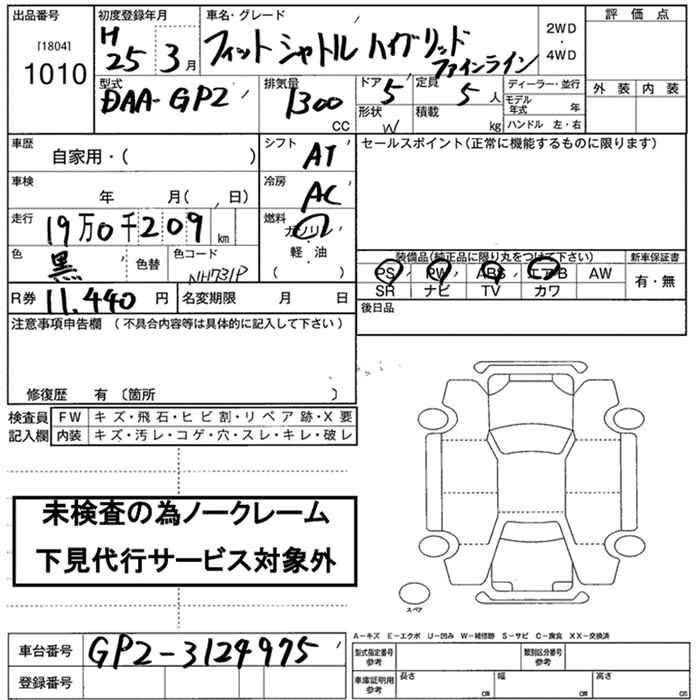 出品番号
[1804]
1010
初度登録年月
H
25 3月
車名・グレード
フィットシャトルハイブリッド
ファインライン
2WD
・
4WD
評価点
外装 内装
型式
DAA-GP2
排気量
1300
CC
ドア 5
形状 W
定員 5 人
積載 kg
ディーラー・並行
モデル年式 年
ハンドル 左・右
車歴
自家用・( )
シフト AT
セールスポイント(正常に機能するものに限ります)
車検
年 月( 、日)
冷房 AC
走行
19万0千209km
燃料
ガソリン
軽・油
( )
色
黒
色替
色コード
NH731P
装備品(純正品に限り丸をつけて下さい)
PS PW ABS エアB AW
SR ナビ TV カワ
新車保証書
有・無
R券 11,440 円
名変期限 月 日
後日品
注意事項申告欄 (不具合内容等は具体的に記入して下さい)
修復歴 有 〔箇所 〕
検査員
記入欄
FW キズ・飛石・ヒビ割・リペア跡・X要
内装 キズ・汚レ・コゲ・穴・スレ・キレ・破レ
未検査の為ノークレーム
下見代行サービス対象外
スペア
A-キズ E-エクボ U-凹み W-補修跡 S-サビ C-腐食 XX-交換済
車台番号 GP2-3124975
登録番号
型式指定番号
参考
類別区分番号
参考
車庫証明用
参考
長さ cm
幅 cm
高さ cm